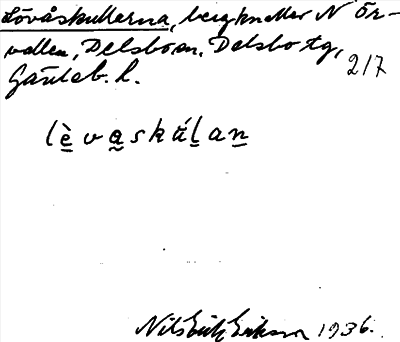 Lövåskullarna, bergknallar N Ör-
vallen, Delsbo sn, Delsbo tg,
Gävleb. l. 217
lèvaskúlan
Nils Erik Eriksson 1936.